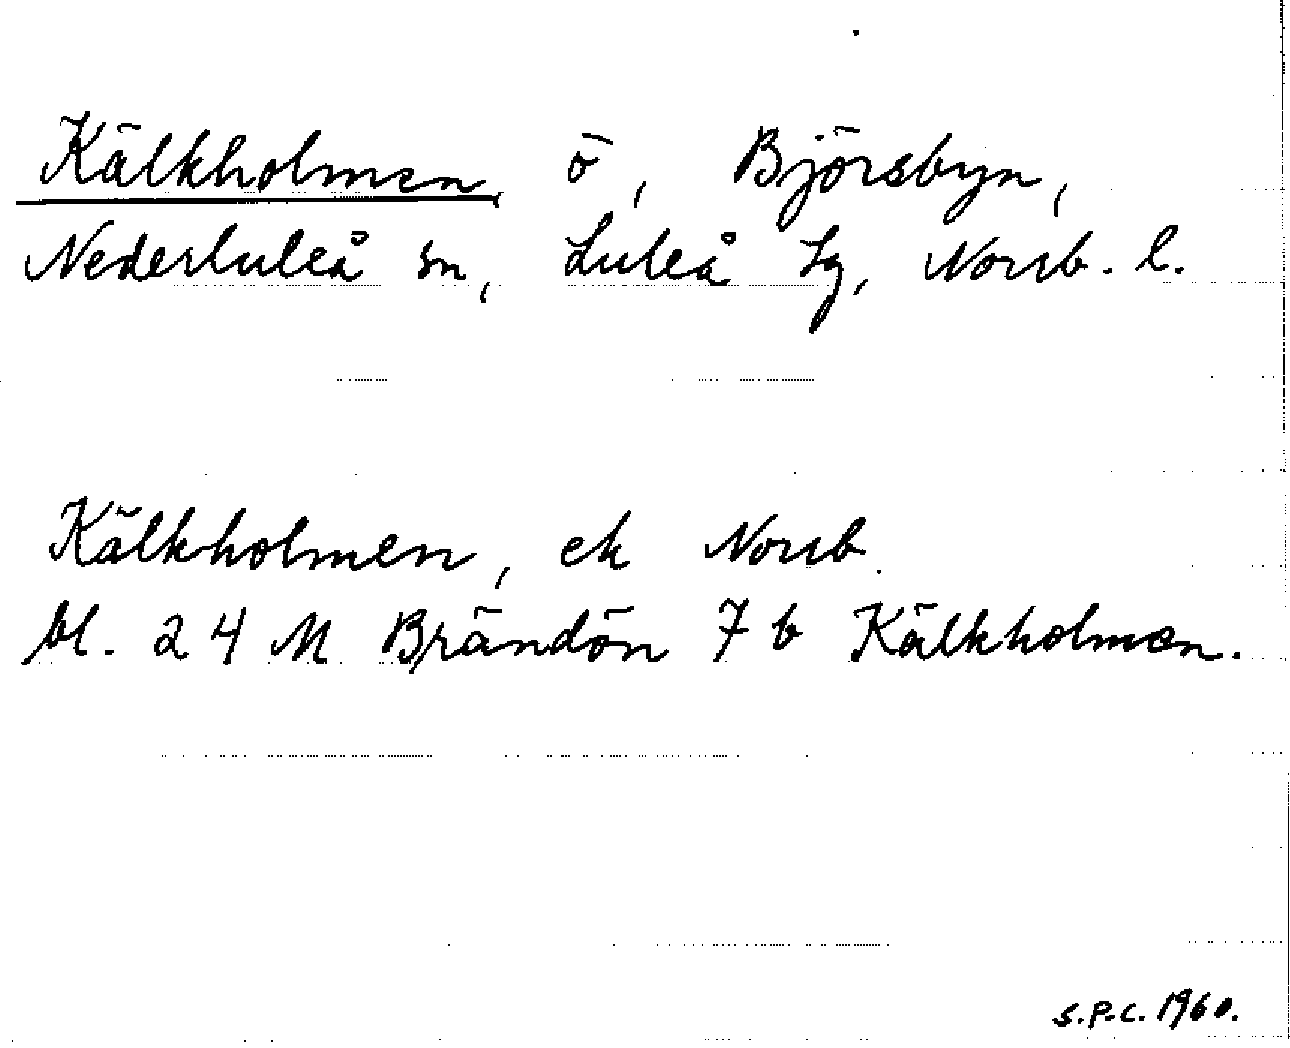 Kälkholmen, ö, Björsbyn,
Nederluleå sn, Luleå tg, Norrb. l.
Kälkholmen, ek Norrb.
bl. 24 M Brändön 7 b Kälkholmen.
S.P.C. 1960.